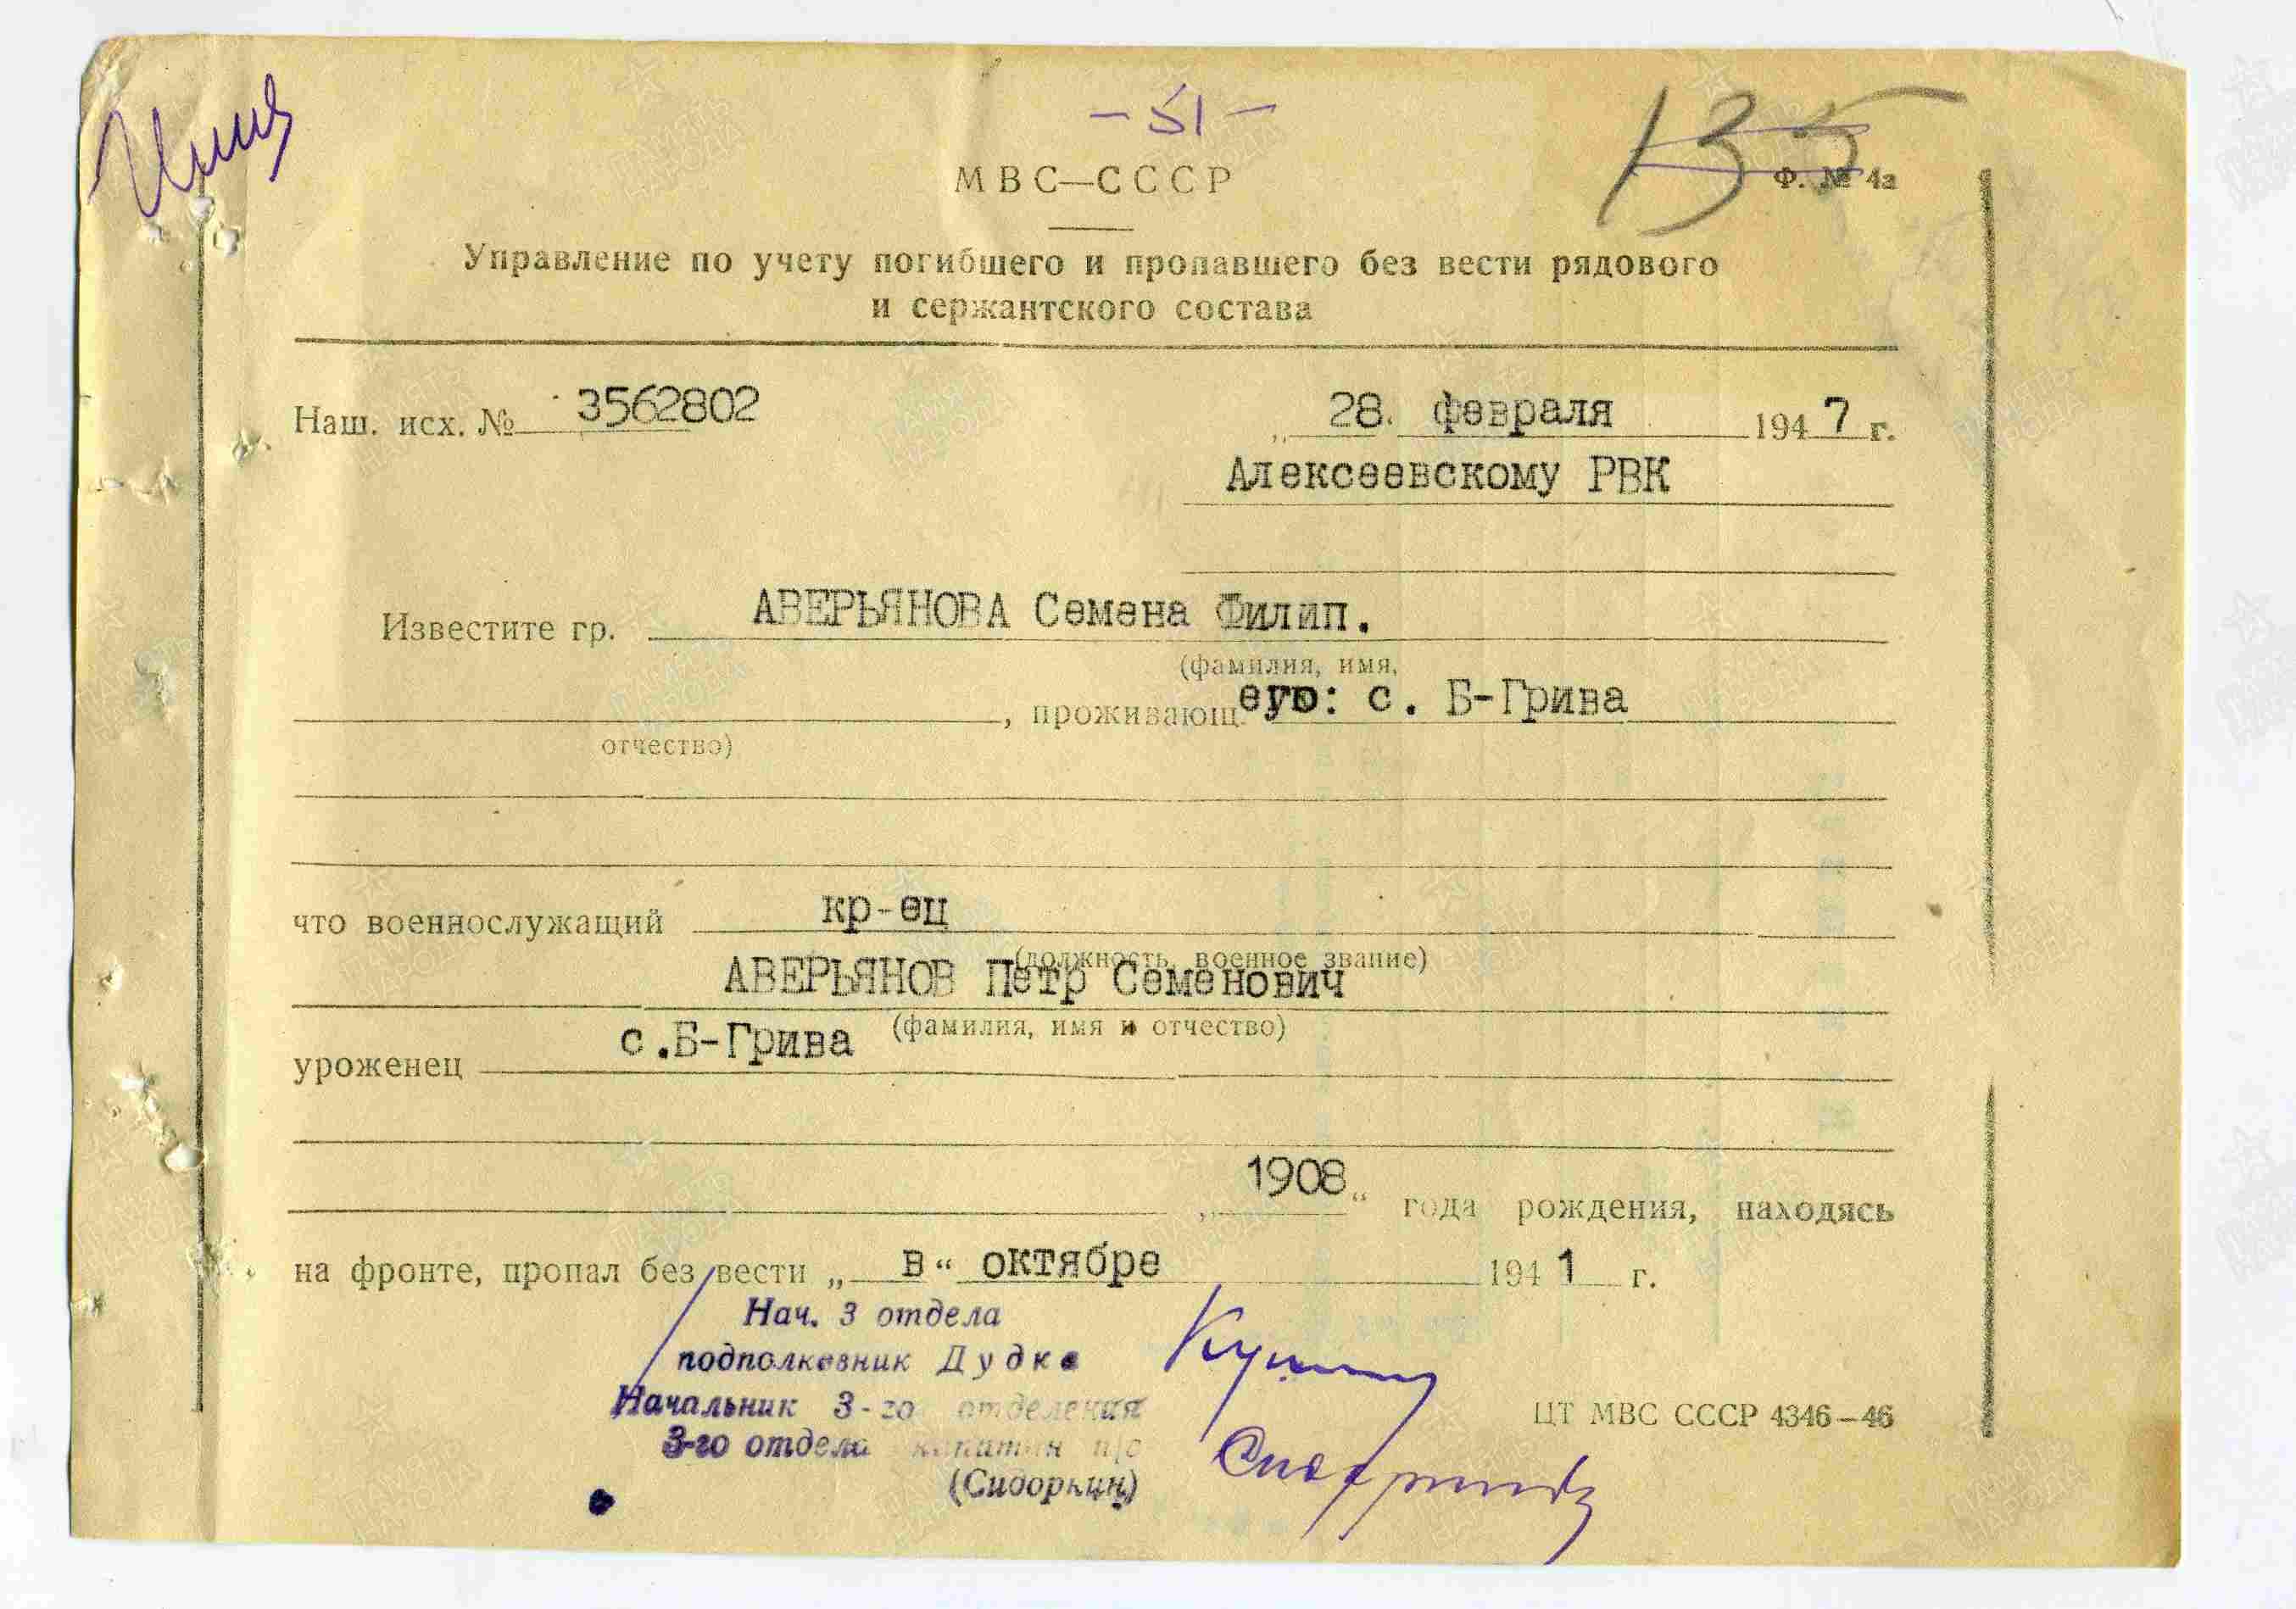 - 51 -
135
МВС—СССР
Ф. № 4а
Управление по учету погибшего и пропавшего без вести рядового
и сержантского состава
Наш. исх. № 3562802
„ 28. февраля 1947 г.
Алексеевскому РВК
Известите гр. АВЕРЬЯНОВА Семена Филип.
(фамилия, имя,
, проживающ. его: с. Б-Грива
отчество)
что военнослужащий кр-ец
(должность, военное звание)
АВЕРЬЯНОВ Петр Семенович
(фамилия, имя и отчество)
уроженец с.Б-Грива
„1908“ года рождения, находясь
на фронте, пропал без вести „ в “ октябре 1941 г.
Нач. 3 отдела
подполковник Дудко
Начальник 3-го отделения
ЦТ МВС СССР 4346—46
3-го отдела капитан
(Сидоркин)
ПАМЯТЬ НАРОДА